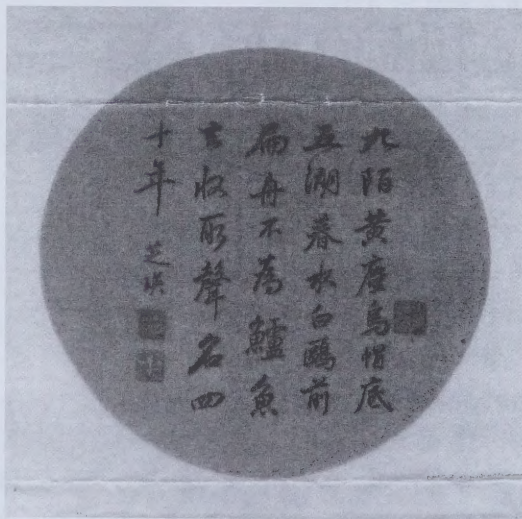 九陌黄塵烏帽底
五湖春水白鷗前
扁舟不為鱸魚
去收取聲名四
十年 芝瑛